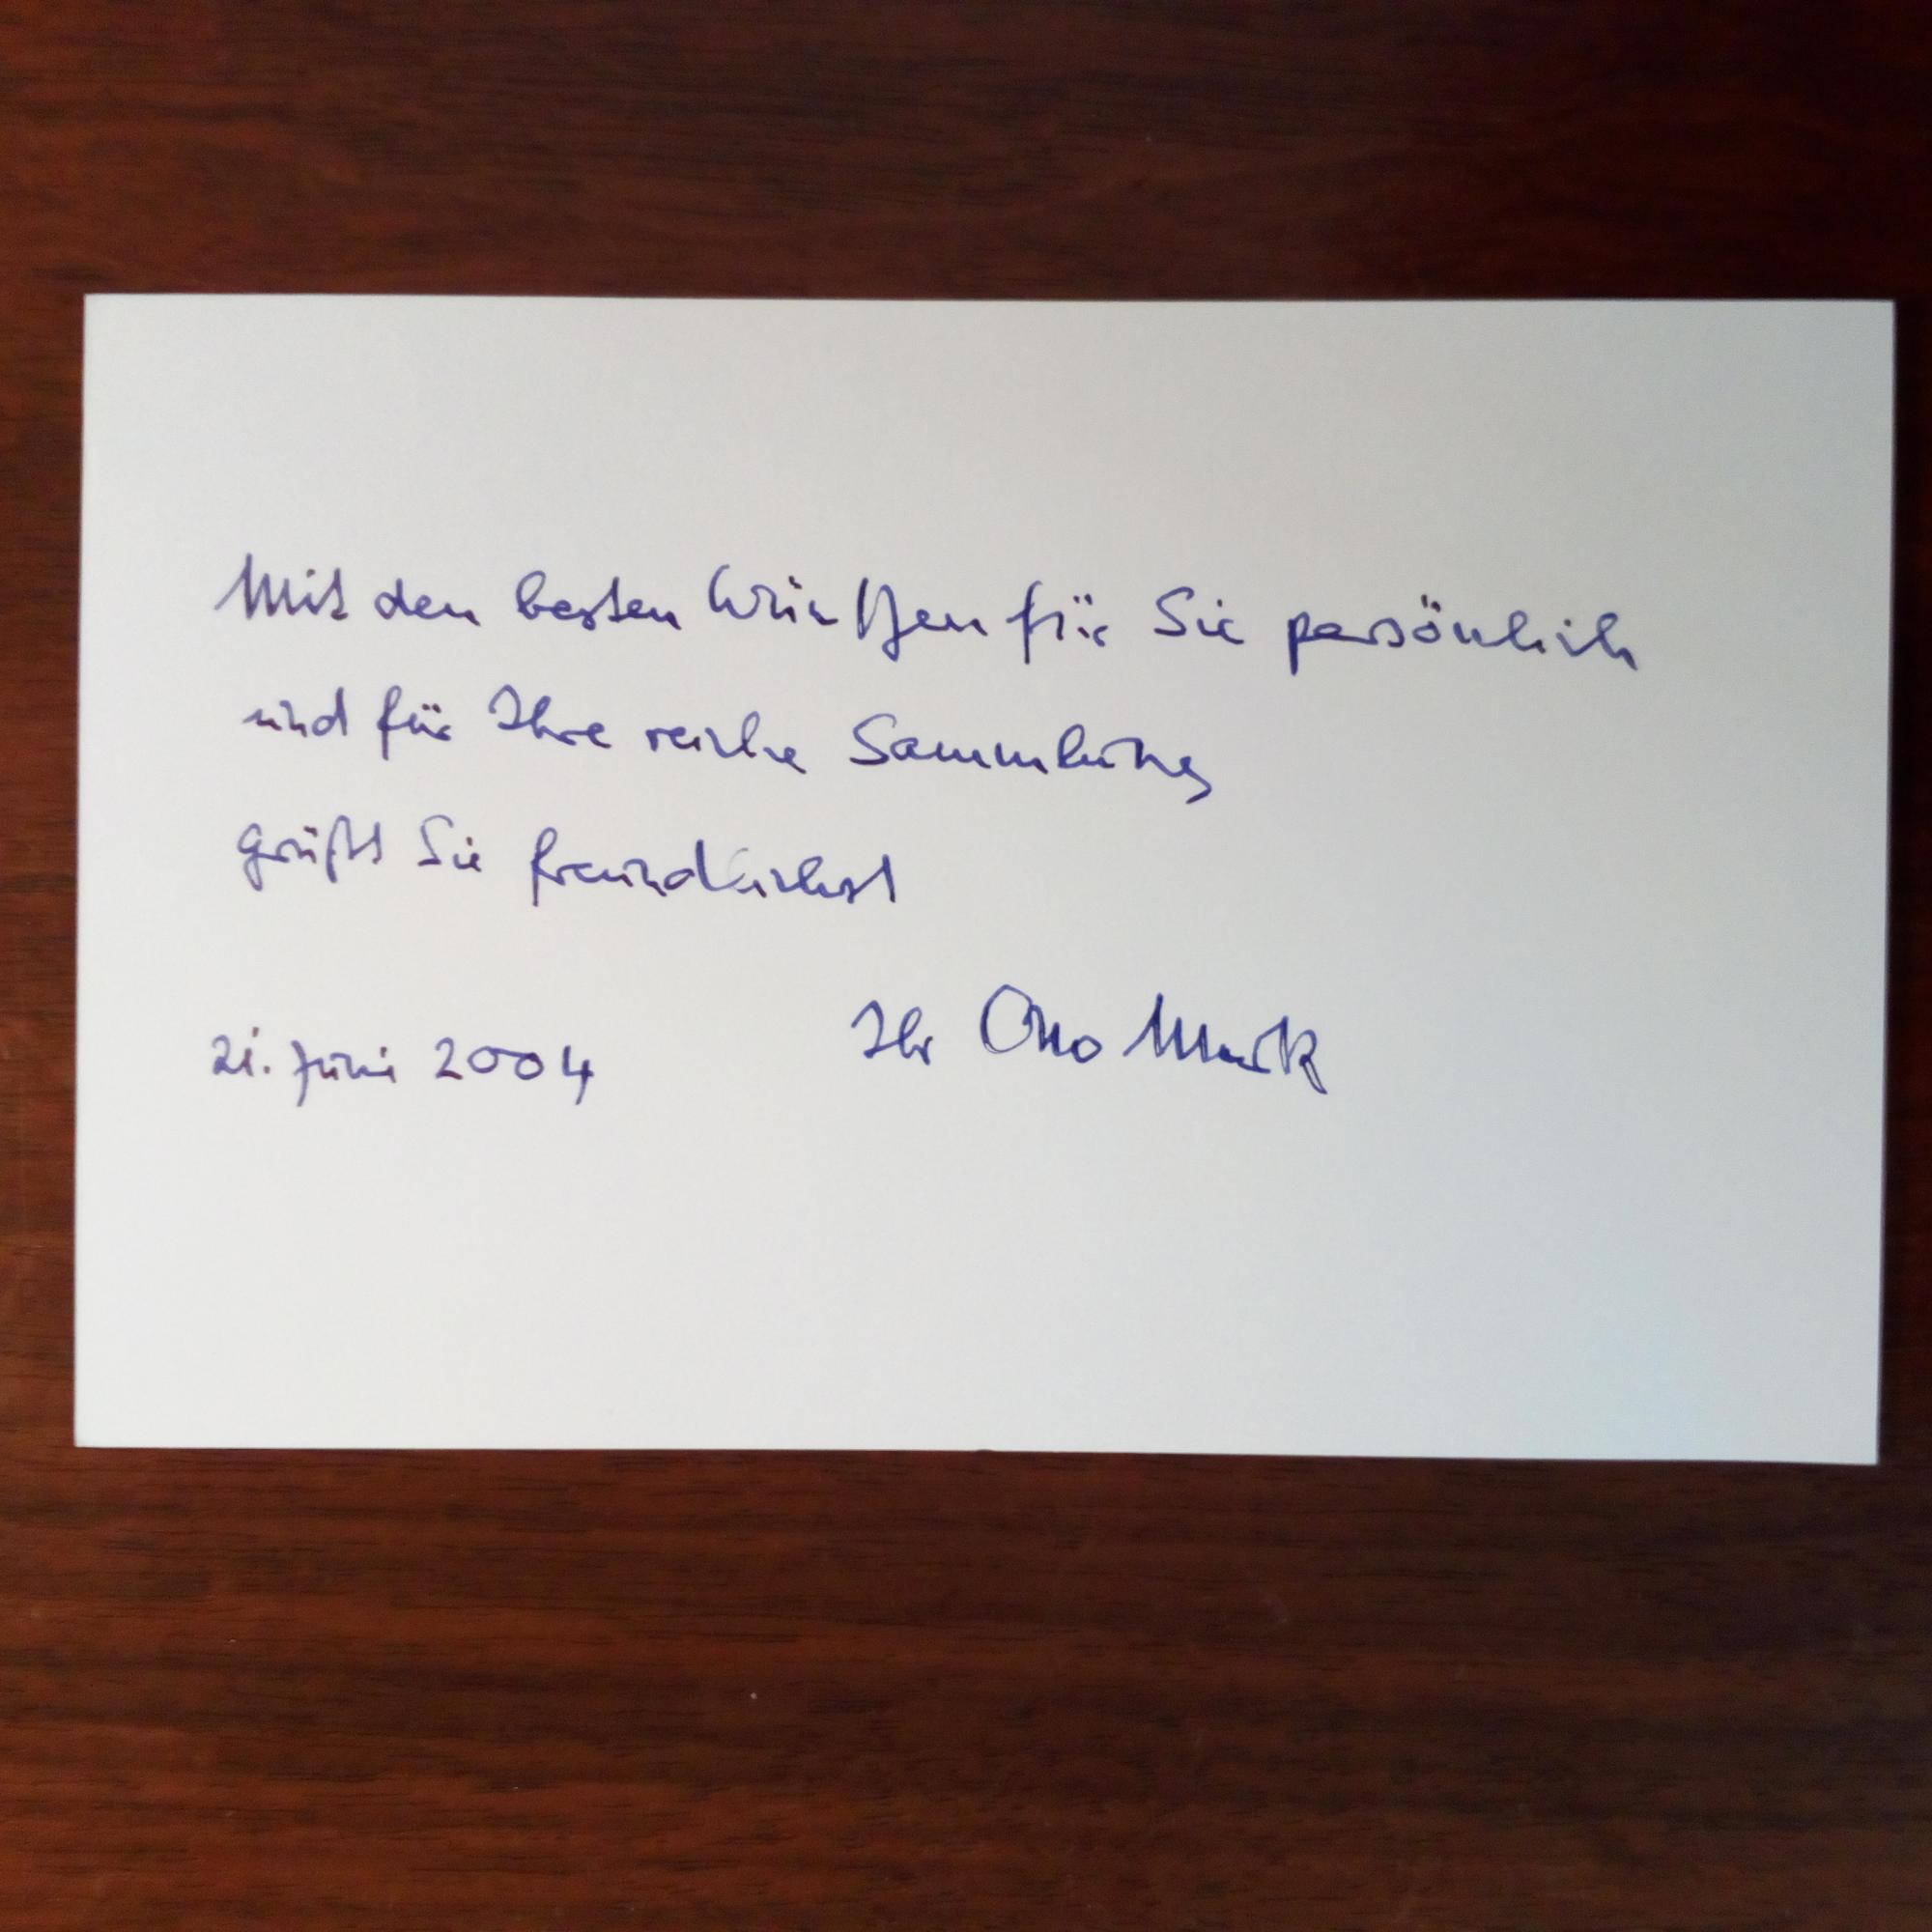 Mit den besten Wünschen für Sie persönlich
und für Ihre reiche Sammlung
grüßt Sie freundlichst
Ihr Otto Merk
21. Juni 2004